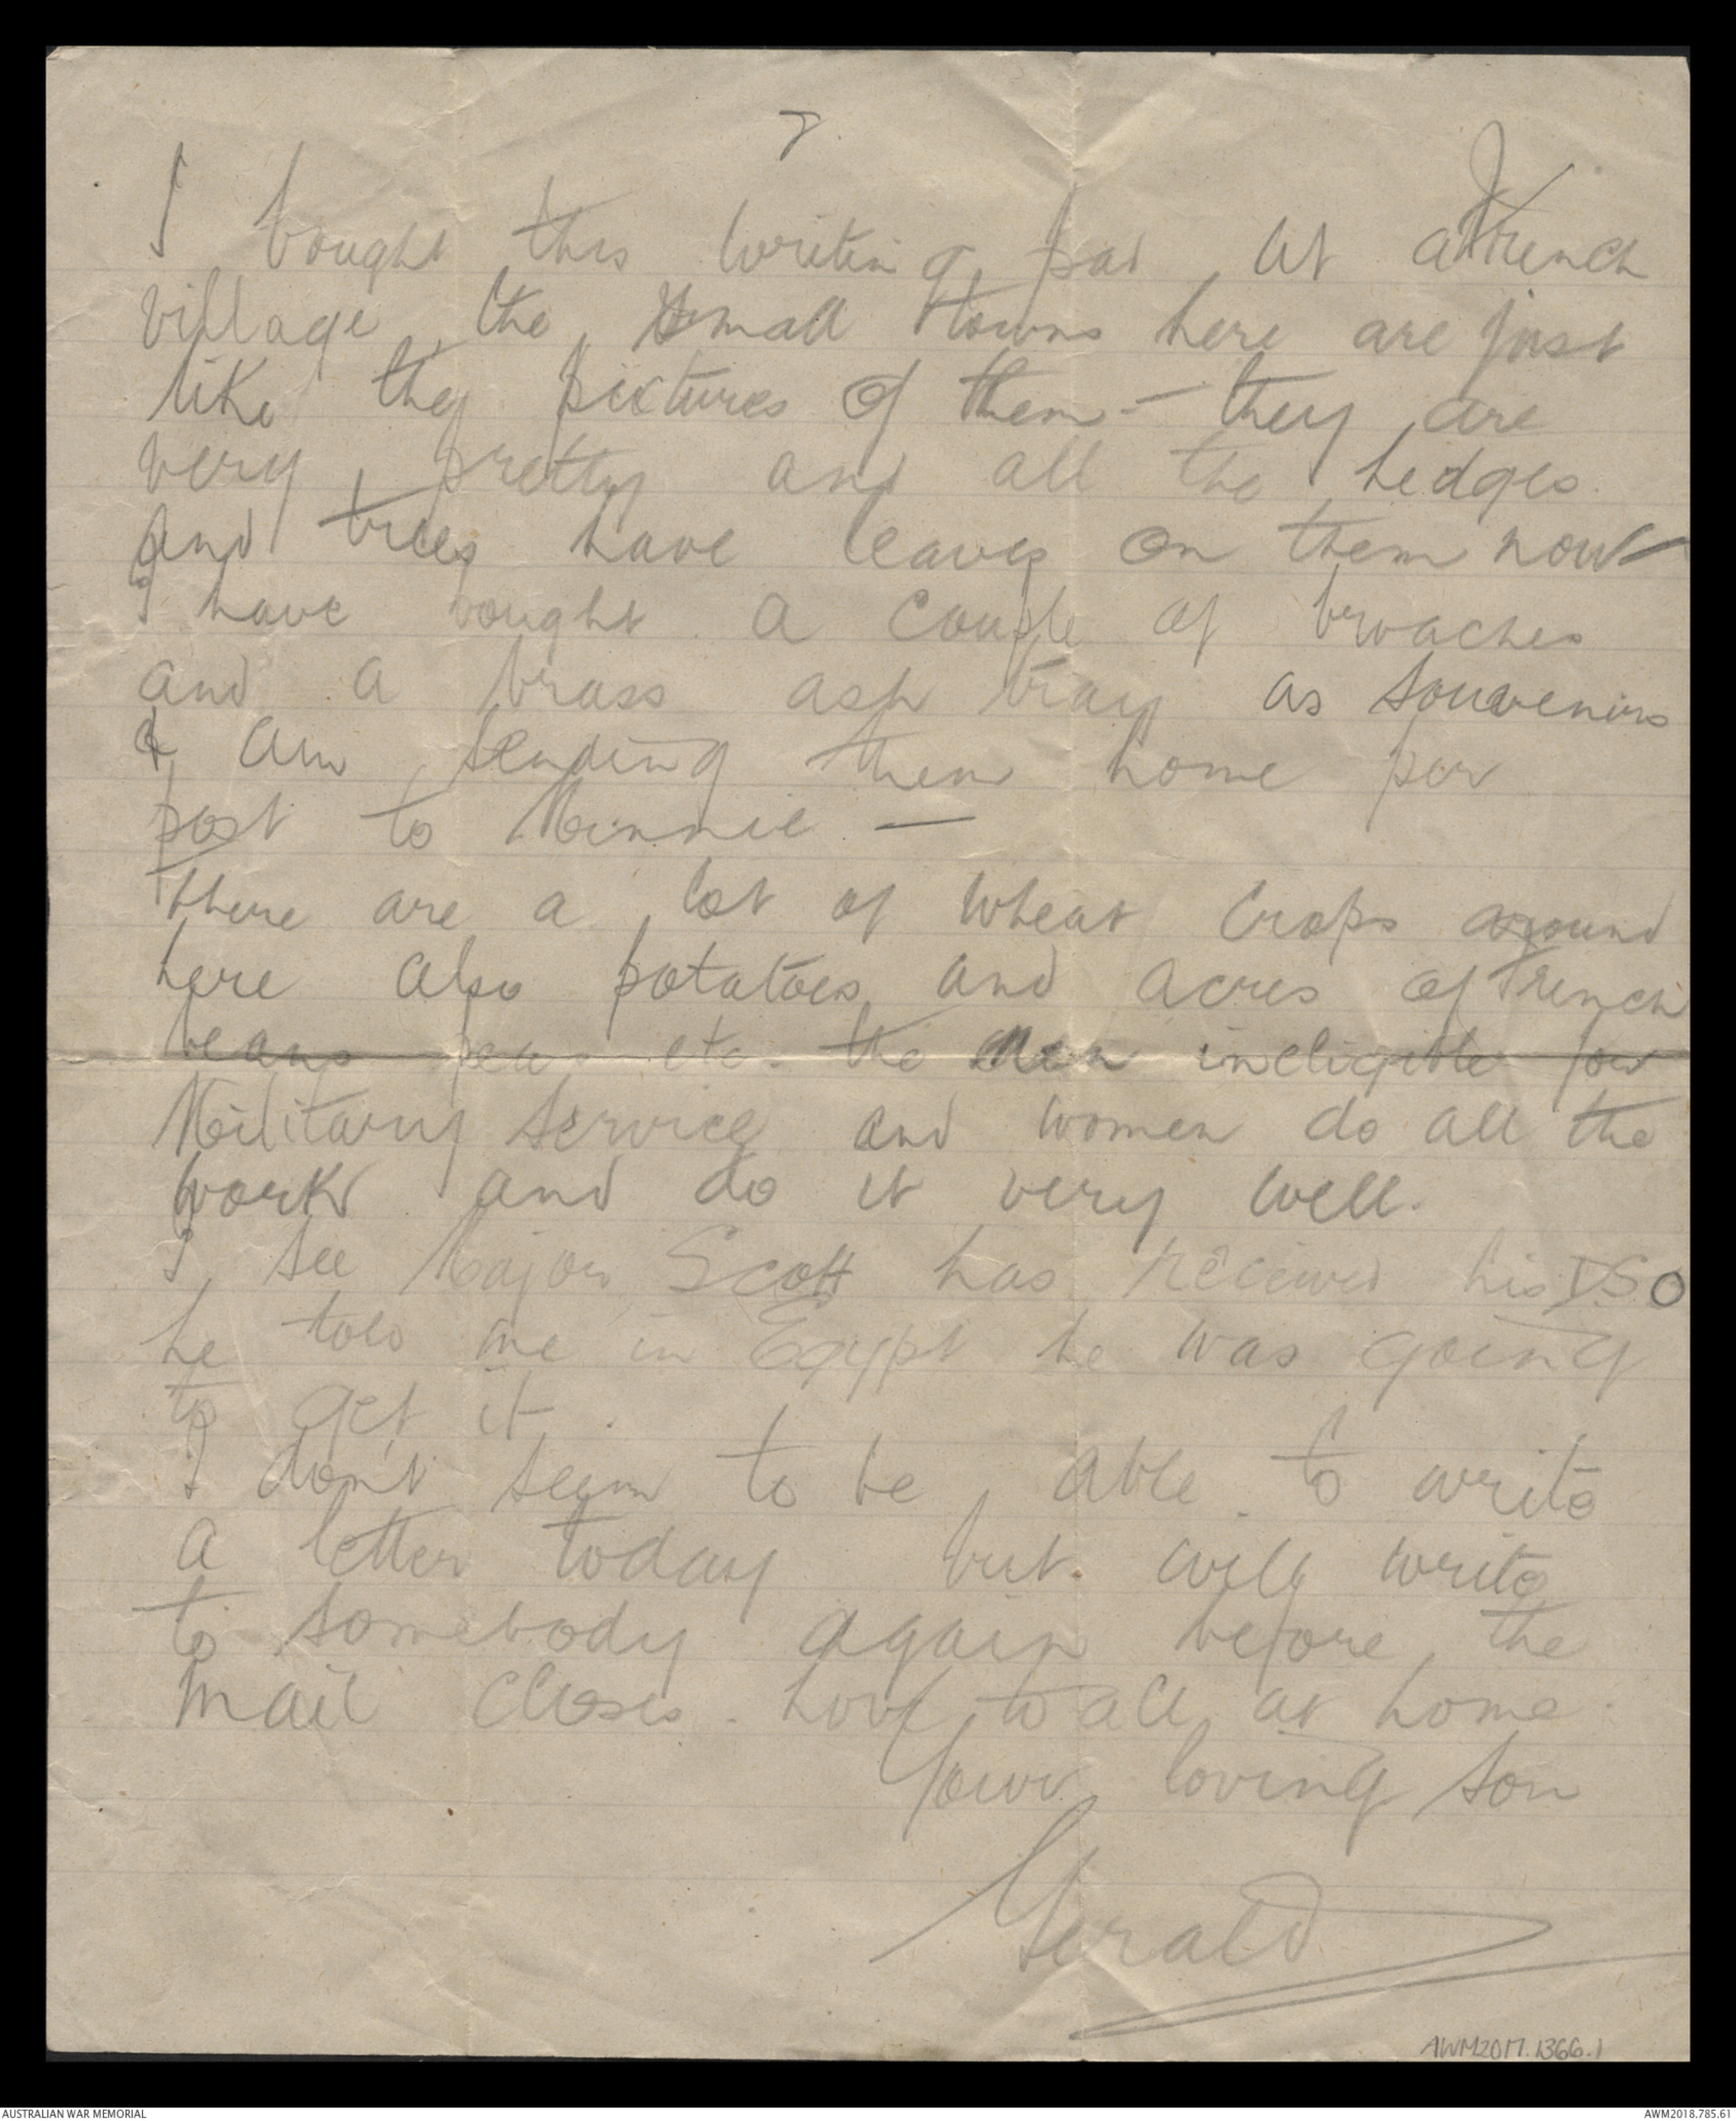 7.
I bought this writing pad at a French
village, the small towns here are just
like the pictures of them - they are
very pretty and all the hedges
and trees have leaves on them now -
I have bought a couple of broaches
and a brass ash tray as souvenirs
& am sending them home per
post to Minnie —
There are a lot of wheat crops around
here also potatoes and acres of French
beans peas etc. the men ineligible for
Military Service and women do all the
work and do it very well.
I see Major Scott has received his DSO
he told me in Egypt he was going
to get it.
I don't seem to be able to write
a letter today but will write
to somebody again before the
mail closes. Love to all at home.
Your loving son
Gerald
AWM2017.1366.1
AUSTRALIAN WAR MEMORIAL
AWM2018.785.61